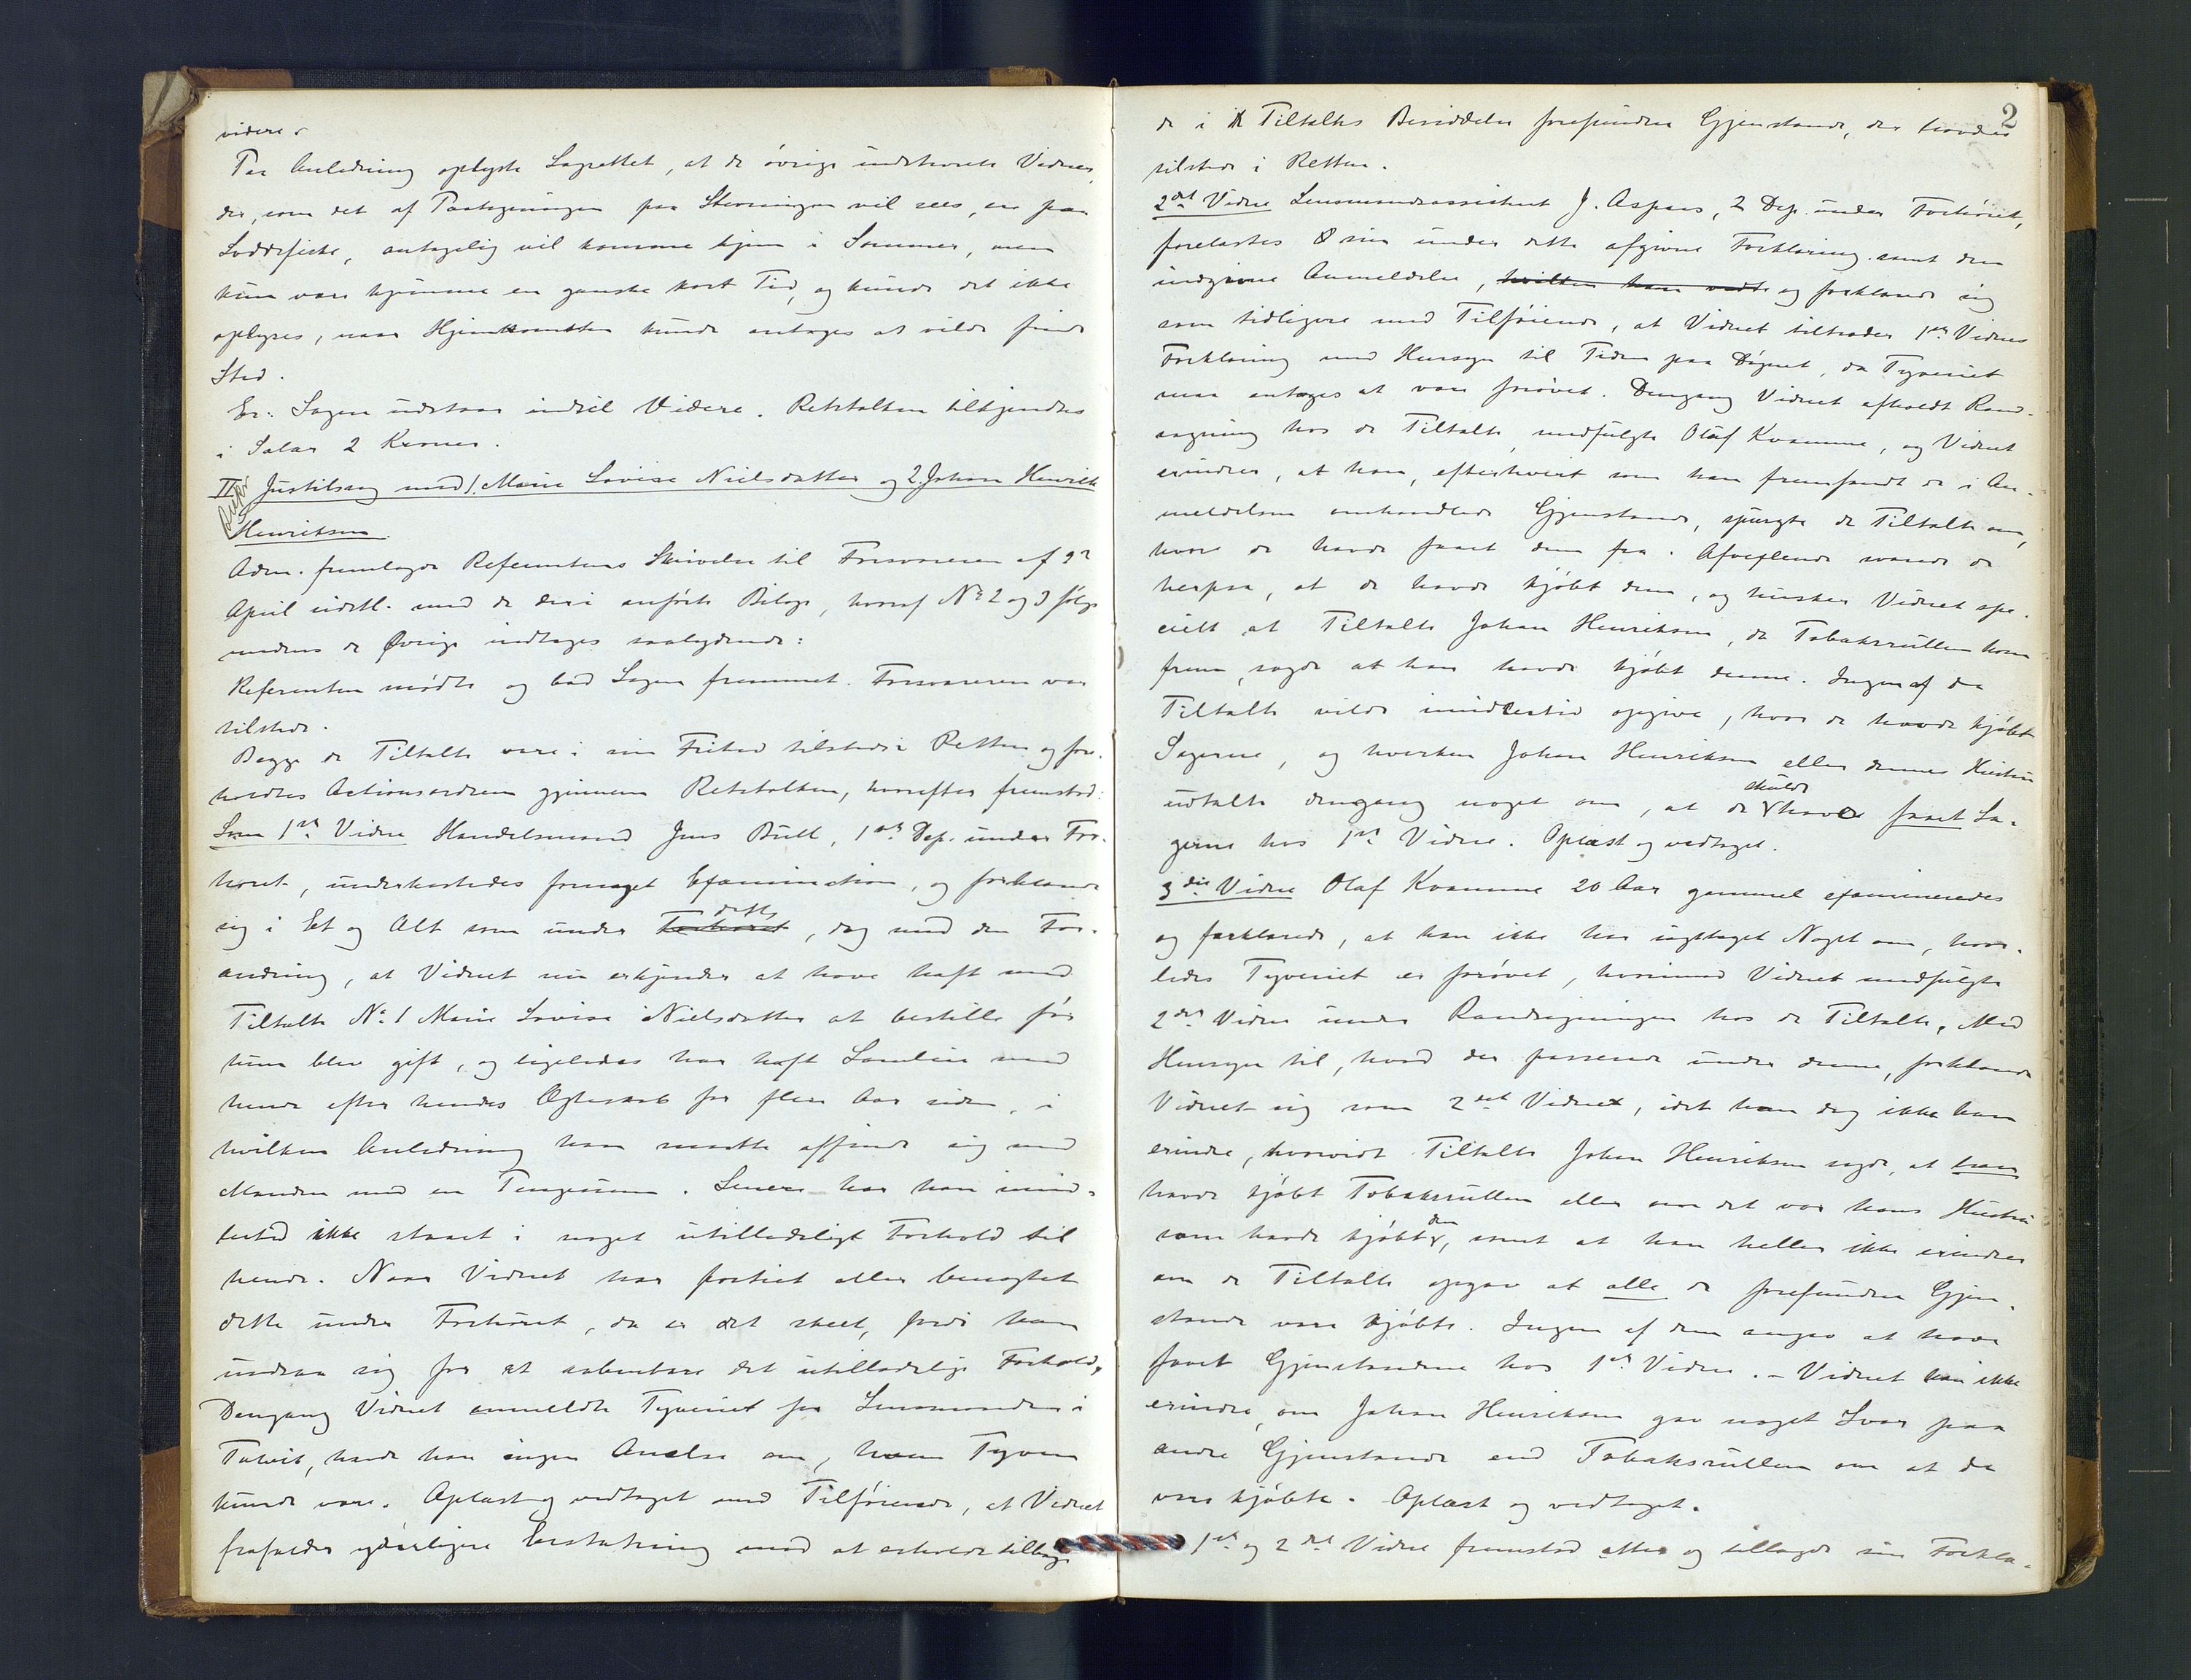 videre.
Paa Anledning oplyste Lagrettet, at de øvrige indstevnte Vidner,
der, som det af Paategningen paa Stevningen vil sees, er paa
Loddefiske, antagelig vil komme hjem i Sommer, men
kun være hjemme en ganske kort Tid, og kunde det ikke
oplyses, naar Hjemkomsten kunde antages at vilde finde
Sted.
Er: Sagen udstaar indtil Videre. Retsfolkene tilkjendtes
i Salær 2 Kroner.
II Justitssag mod 1. Marie Lovise Nielsdatter og 2. Johan Henrik
Henriksen.
Adm. fremlagde Referentens Skrivelse til Forsvareren af 9de
April sidstl. med de deri anførte Bilage, hvoraf No 2 og 3 følge
medens de Øvrige indtages saalydende:
Referenten mødte og bad Sagen fremmet. Forsvareren var
tilstede.
Begge de Tiltalte vare i sin Frihed tilstede i Retten og fore-
holdtes Actionsordren gjennem Retstolken, hvorefter fremstod:
Som 1ste Vidne Handelsmand Jens Bull, 1ste Dep. under For-
høret, underkastedes fornøget Examination, og forklarede
sig i Et og Alt som under dette Forhøret, dog med den For-
andring, at Vidnet nu erkjender at have haft med
Tiltalte No 1 Marie Lovise Nielsdatter at bestille før
hun blev gift, og ligeledes har haft Samleie med
hende efter hendes Ægteskab for flere Aar siden, i
hvilken Anledning han maatte affinde sig med
Manden med en Pengesum. Senere har han imid-
lertid ikke staaet i noget utilladeligt Forhold til
hende. Naar Vidnet har fortiet eller benegtet
dette under Forhøret, da er det skeet, fordi han
undsaa sig for at aabenbare det utilladelige Forhold,
Dengang Vidnet anmeldte Tyveriet for Lensmanden i
Talvik, havde han ingen Anelse om, hvem Tyven
kunde være. Oplæst og vedtaget med Tilføiende, at Vidnet
frafalder yderligere Erstatning mod at erholde tilbage
2
de i de Tiltaltes Besiddelse forefundne Gjenstande, der havdes
tilstede i Retten.
2det Vidne Lensmandsassistent J. Aspaas, 2 Dep. under Forhøret,
forelæstes sin under dette afgivne Forklaring samt den
indgivne Anmeldelse, hvilken han vedt og forklarede sig
som tidligere med Tilføiende, at Vidnet tiltræder 1ste Vidnes
Forklaring med Hensyn til Tiden paa Døgnet, da Tyveriet
maa antages at være forøvet. Dengang Vidnet afholdt Rand-
sagning hos de Tiltalte, medfulgte Olaf Kvamme, og Vidnet
erindrer, at han, efterhvert som han fremfandt de i An-
meldelsen omhandlede Gjenstande, spurgte de Tiltalte om,
hvor de havde faaet dem fra. Afvexlende svarede de
herpaa, at de havde kjøbt dem, og husker Vidnet spe-
cielt at Tiltalte Johan Henriksen, da Tobaksrullen kom
frem, sagde at han havde kjøbt denne. Ingen af de
Tiltalte vilde imidlertid opgive, hvor de havde kjøbt
Sagerne, og hverken Johan Henriksen eller dennes Hustru
udtalte dengang noget om, at de skulde have faaet Sa-
gerne hos 1ste Vidne. Oplæst og vedtaget.
3die Vidne Olaf Kvamme 20 Aar gammel examineredes
og forklarede, at han ikke har iagttaget Noget om, hvor-
ledes Tyveriet er forøvet, hvorimod Vidnet medfulgte
2det Vidne under Randsagningen hos de Tiltalte. Med
Hensyn til, hvad der passerede under denne, forklarede
Vidnet sig som 2det Vidne, idet han dog ikke kan
erindre, hvorvidt Tiltalte Johan Henriksen sagde, at han
havde kjøbt Tobaksrullen eller om det var hans Hustru
som havde kjøbt den, samt at han heller ikke erindrer
om de Tiltalte opgav at alle de forefundne Gjen-
stande vare kjøbte. Ingen af dem angav at have
faaet Gjenstandene hos 1ste Vidne. – Vidnet kan ikke
erindre, om Johan Henriksen gav noget Svar paa
andre Gjenstande end Tobaksrullen om at de
vare kjøbte. Oplæst og vedtaget.
1ste og 2det Vidne fremstod atter og tillagde sin Forkla-